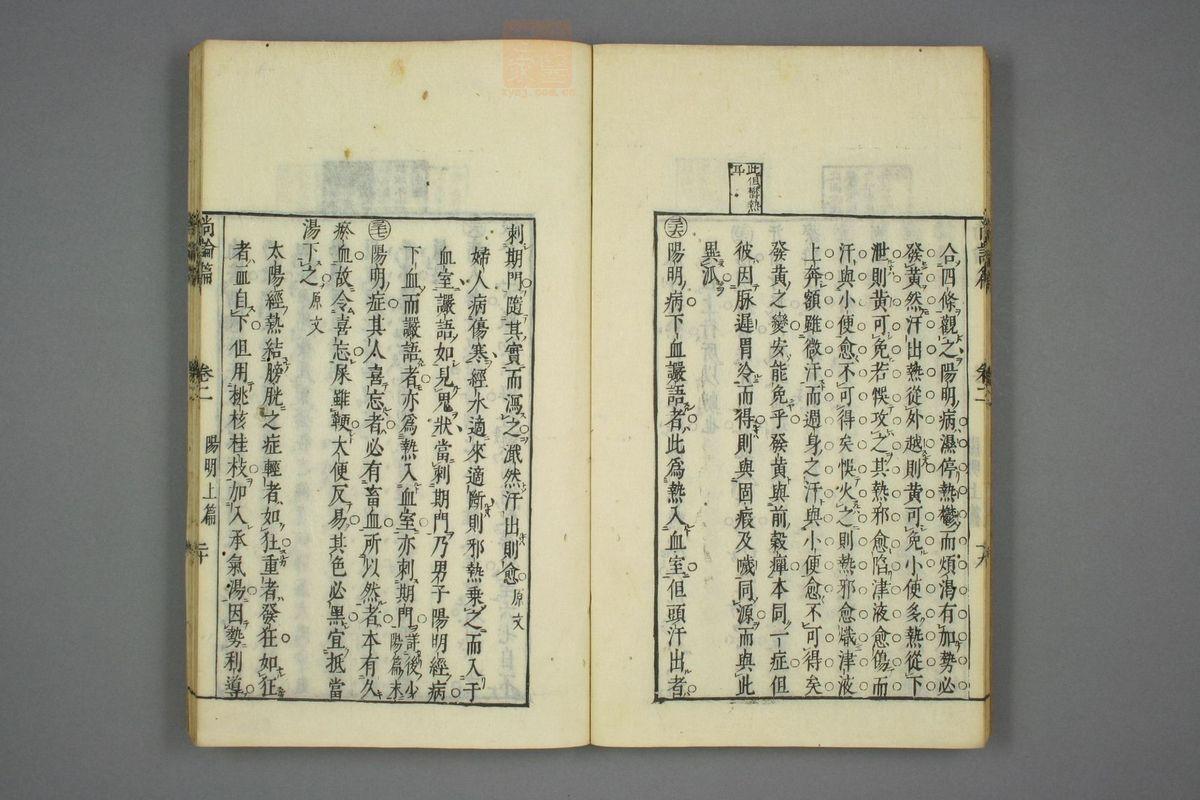 此但瘀熱
耳
合四條觀之陽明病濕停熱鬱而煩渴有加勢必
發黃然汗出熱從外越則黃可免小便多熱從下
泄則黃可免若悞攻之其熱邪愈陷津液愈傷而
汗與小便愈不可得矣悞火之則熱邪愈熾津液
上奔額雖微汗而週身之汗與小便愈不可得矣
發黃之變安能免乎發黃與前穀癉本同一症但
彼因脉遲胃冷而得則與固瘕及噦同源而與此
異派
陽明病下血讝語者此爲熱入血室但頭汗出者
尚論篇 卷二
刺期門隨其實而瀉之濈然汗出則愈原文
婦人病傷寒經水適來適斷則邪熱乗之而入于
血室讝語如見鬼狀當刺期門乃男子陽明經病
下血而讝語者亦爲熱入血室亦刺期門詳後少陽篇末
陽明症其人喜忘者必有畜血所以然者本有久
瘀血故令喜忘屎雖鞕大便反易其色必黑宜抵當
湯下之原文
太陽經熱結膀胱之症輕者如狂重者發狂如狂
者血自下但用桃核桂枝加入承氣湯因勢利導
尚論篇 卷二 陽明上篇 二十